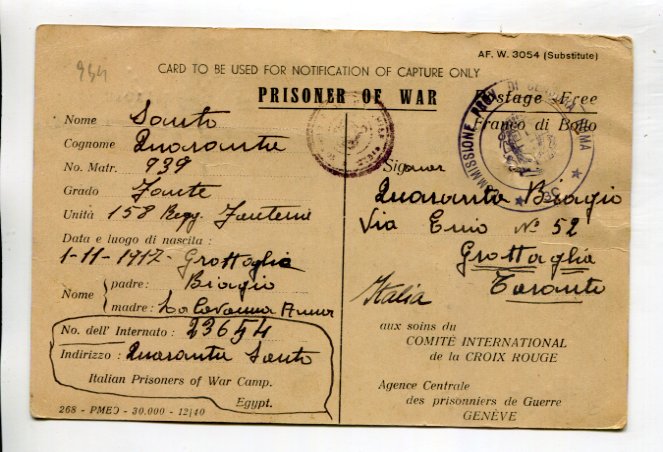 AF. W. 3054 (Substitute)
954
CARD TO BE USED FOR NOTIFICATION OF CAPTURE ONLY
PRISONER OF WAR
Postage Free
Franco di Bollo
Nome Santo
Cognome Quaranta
No. Matr. 939
Grado Fante
Unità 158 Regg. Fanteria
Data e luogo di nascita :
1-11-1917- Grottaglie
Nome
padre: Biagio
madre: La Cavanna Anna
No. dell' Internato : 23654
Indirizzo : Quaranta Santo
Italian Prisoners of War Camp.
Egypt.
268 - PMEO - 30.000 - 12/40
Signor
Quaranta Biagio
Via Ennio No 52
Grottaglie
Taranto
Italia
aux soins du
COMITÉ INTERNATIONAL
de la CROIX ROUGE
Agence Centrale
des prisonniers de Guerre
GENÈVE